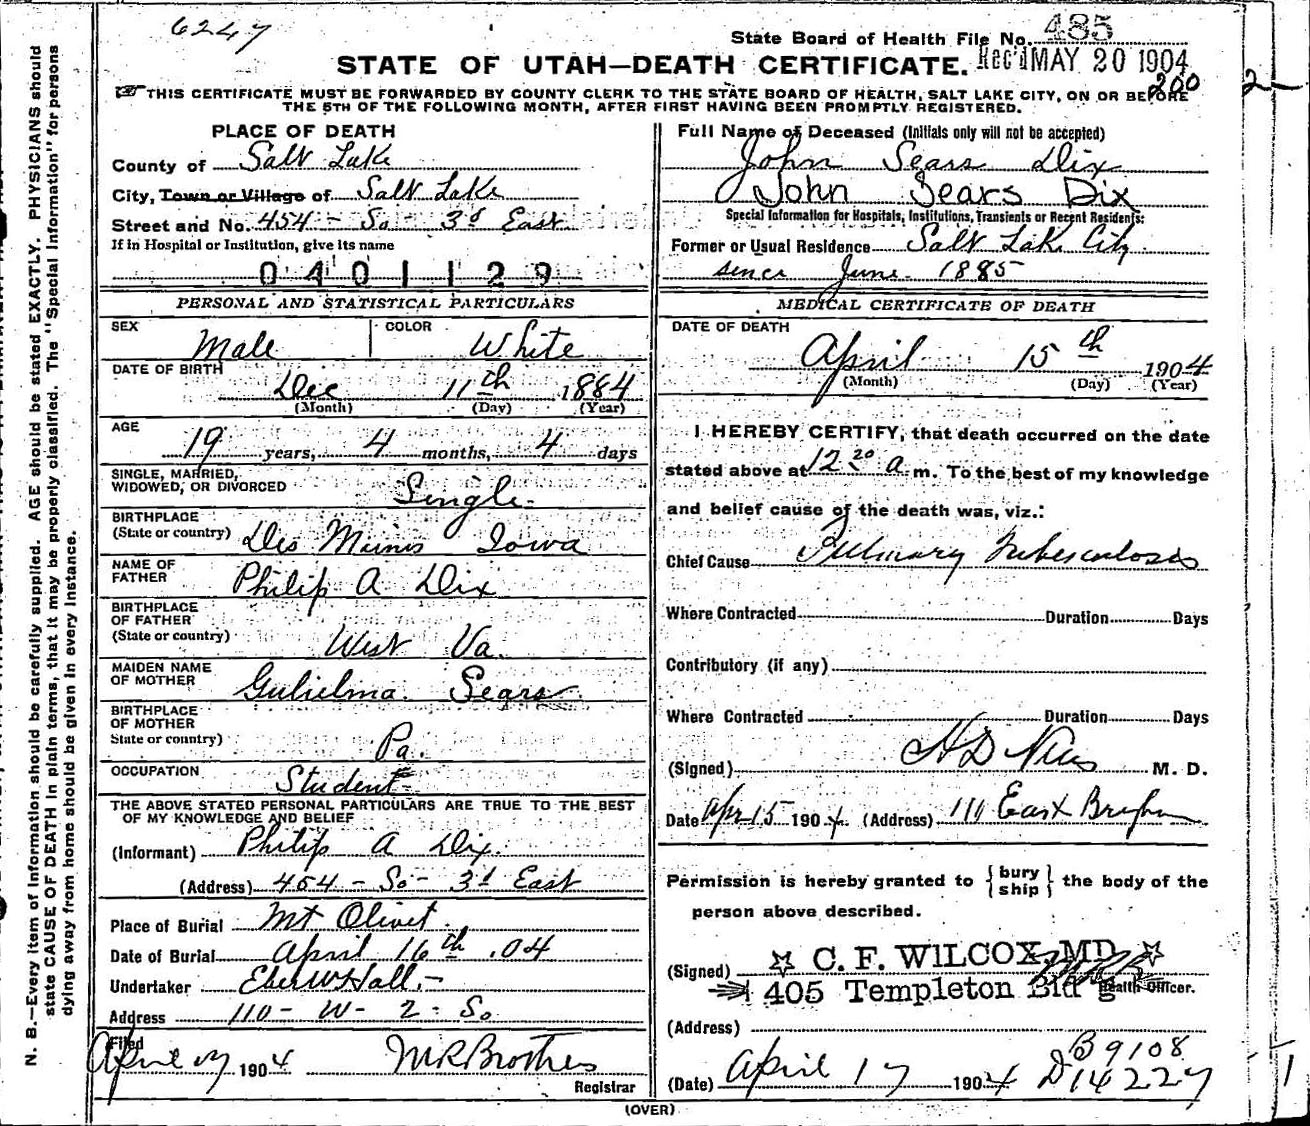 6247
State Board of Health File No. 485
STATE OF UTAH—DEATH CERTIFICATE. Rec'd MAY 20 1904
200
2
THIS CERTIFICATE MUST BE FORWARDED BY COUNTY CLERK TO THE STATE BOARD OF HEALTH, SALT LAKE CITY, ON OR BEFORE
THE 5TH OF THE FOLLOWING MONTH, AFTER FIRST HAVING BEEN PROMPTLY REGISTERED.
N. B.—Every item of information should be carefully supplied. AGE should be stated EXACTLY. PHYSICIANS should
state CAUSE OF DEATH in plain terms, that it may be properly classified. The "Special Information" for persons
dying away from home should be given in every instance.
PLACE OF DEATH
County of Salt Lake
City, Town or Village of Salt Lake
Street and No. 454 - So - 3d East
If in Hospital or Institution, give its name
0401129
PERSONAL AND STATISTICAL PARTICULARS
SEX Male COLOR White
DATE OF BIRTH Dec 11th 1884
(Month) (Day) (Year)
AGE 19 years, 4 months, 4 days
SINGLE, MARRIED,
WIDOWED, OR DIVORCED Single
BIRTHPLACE
(State or country) Des Moines Iowa
NAME OF
FATHER Philip A Dix
BIRTHPLACE
OF FATHER
(State or country) West Va.
MAIDEN NAME
OF MOTHER Gulielma Sears
BIRTHPLACE
OF MOTHER
State or country) Pa.
OCCUPATION Student
THE ABOVE STATED PERSONAL PARTICULARS ARE TRUE TO THE BEST
OF MY KNOWLEDGE AND BELIEF
(Informant) Philip A Dix.
(Address) 454 - So - 3d East
Place of Burial Mt Olivet
Date of Burial April 16th .04
Undertaker Eber W Hall
Address 110 - W - 2 - So
Filed
April 1904
Registrar
Full Name of Deceased (Initials only will not be accepted)
John Sears Dix
John Sears Dix
Special Information for Hospitals, Institutions, Transients or Recent Residents:
Former or Usual Residence Salt Lake City
since June 1885
MEDICAL CERTIFICATE OF DEATH
DATE OF DEATH
April 15th 1904
(Month) (Day) (Year)
I HEREBY CERTIFY, that death occurred on the date
stated above at 12 20 a.m. To the best of my knowledge
and belief cause of the death was, viz.:
Chief Cause Pulmonary Tuberculosis
Where Contracted Duration Days
Contributory (if any)
Where Contracted Duration Days
(Signed) M. D.
Date Apr 15 1904. (Address) 111 East Brigham
Permission is hereby granted to { bury ship } the body of the
person above described.
(Signed) ☆ C. F. WILCOX, MD ☆
405 Templeton Bldg Health Officer.
(Address)
(Date) April 17 1904
B 9108
D 14227
1
(OVER)